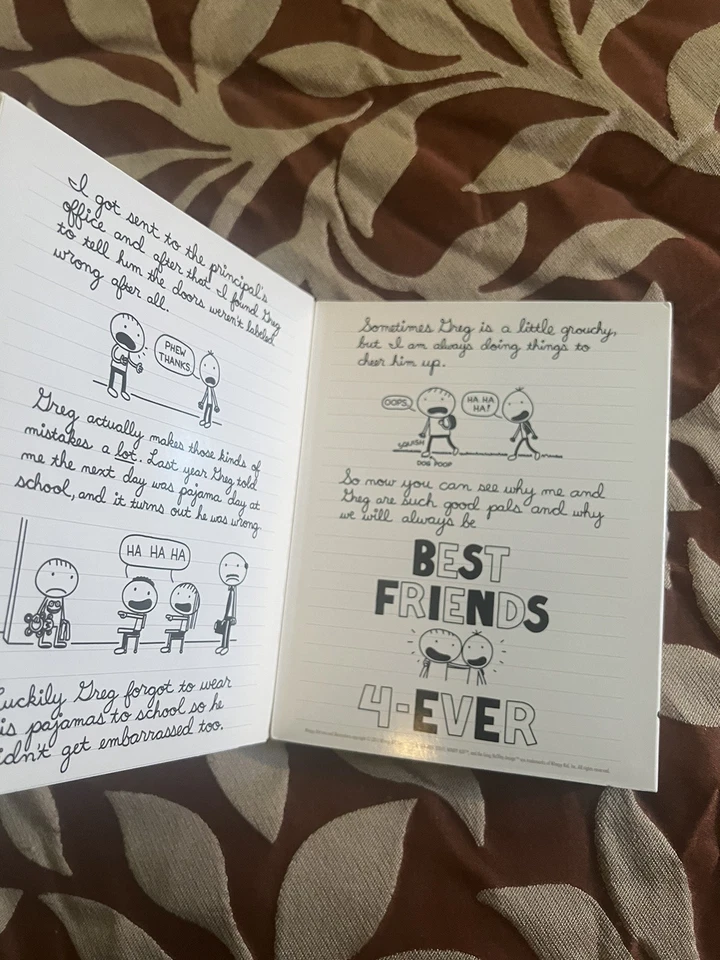 I got sent to the principal's
office and after that I found Greg
to tell him the doors weren't labeled
wrong after all.
PHEW
THANKS.
Greg actually makes those kinds of
mistakes a lot. Last year Greg told
me the next day was pajama day at
school, and it turns out he was wrong.
HA HA HA
uckily Greg forgot to wear
is pajamas to school so he
idn't get embarrassed too.
Sometimes Greg is a little grouchy,
but I am always doing things to
cheer him up.
OOPS.
HA HA
HA!
SQUISH
DOG POOP
So now you can see why me and
Greg are such good pals and why
we will always be
BEST
FRIENDS
4-EVER